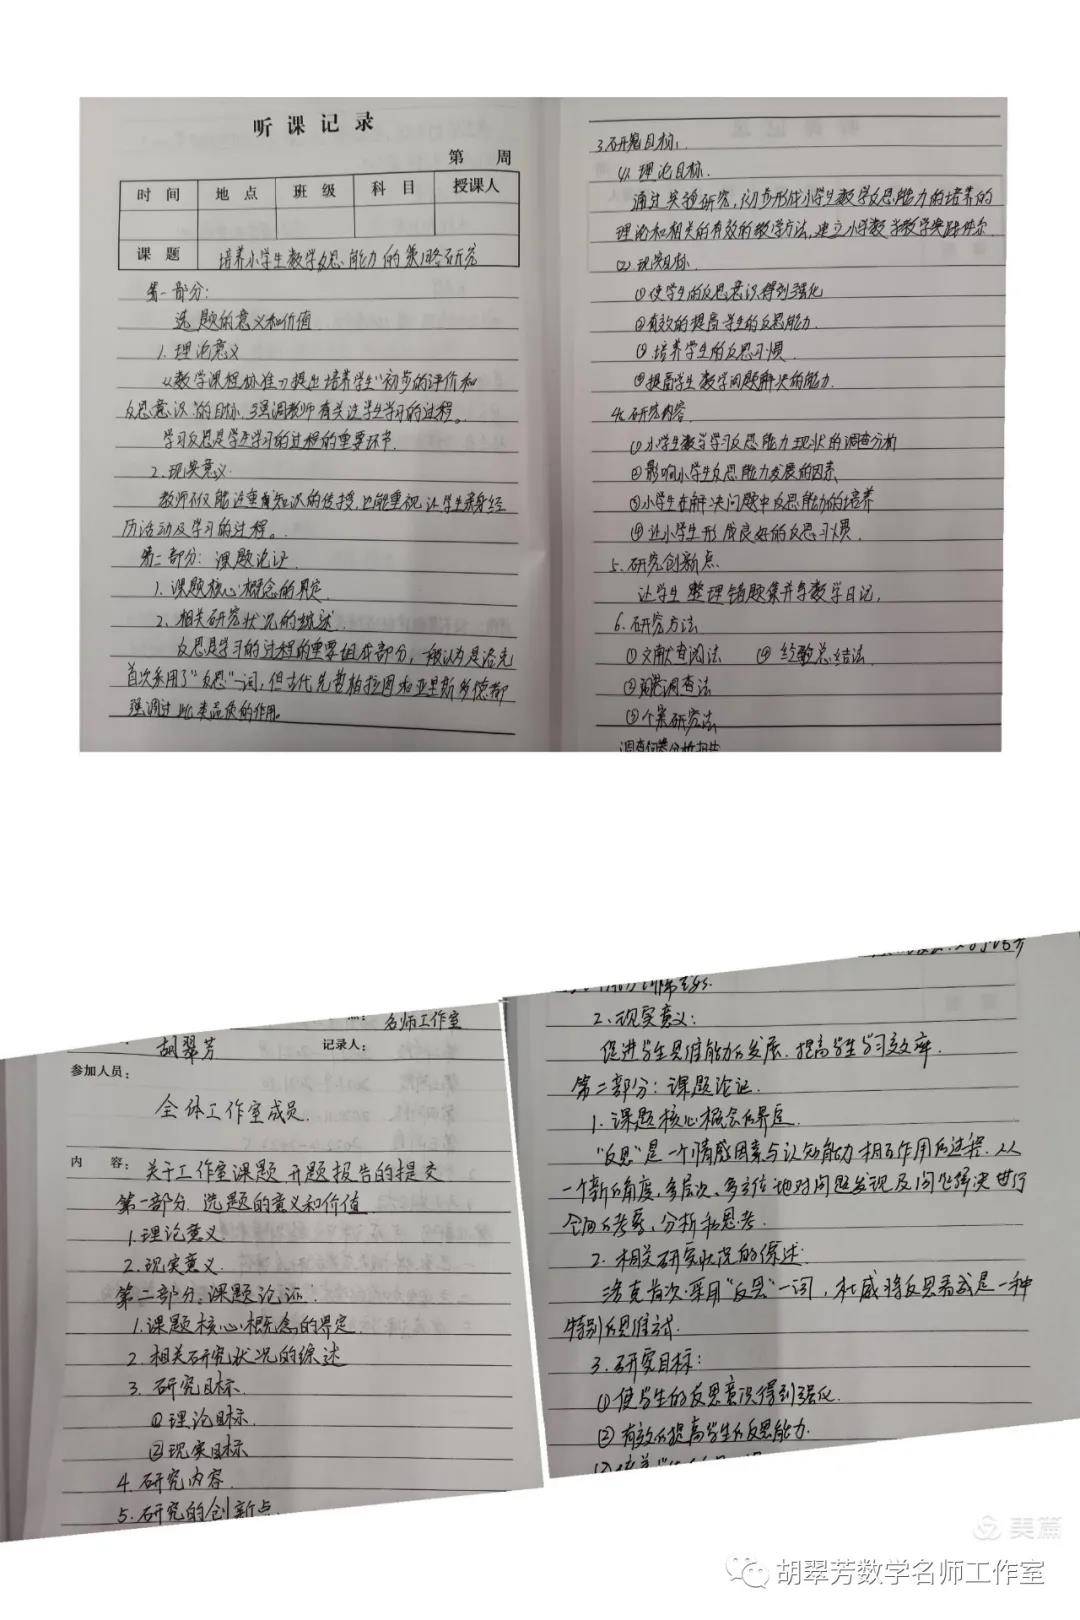 听课记录
第 周
时间 地点 班级 科目 授课人
课题 培养小学生数学反思能力的策略研究
第一部分：
选题的意义和价值
1. 理论意义
《数学课程标准》提出培养学生“初步的评价和
反思意识”的目标，强调教师有关注学生学习的过程。
学习反思是学生学习的过程的重要环节.
2. 现实意义.
教师不仅能注重知识的传授，也能重视让学生亲身经
历活动及学习的过程。
第二部分：课题论证.
1. 课题核心概念的界定.
2. 相关研究状况的综述
反思是学习的过程的重要组成部分，一般认为是洛克
首次采用了“反思”一词，但古代先哲柏拉图和亚里斯多德都
强调过此类品质的作用。
3. 研究目标：
(1) 理论目标.
通过实验研究，初步形成小学生数学反思能力的培养的
理论和相关的有效的教学方法，建立小学数学教学实践体系.
(2) 现实目标.
①使学生的反思意识得到强化
②有效的提高学生的反思能力.
③培养学生的反思习惯.
④提高学生数学问题解决的能力.
4. 研究内容.
①小学生数学学习反思能力现状的调查分析
②影响小学生反思能力发展的因素.
③小学生在解决问题中反思能力的培养
④让小学生形成良好的反思习惯.
5. 研究创新点.
让学生整理错题集并写数学日记.
6. 研究方法
①文献查阅法 ④经验总结法.
②问卷调查法
③个案研究法
名师工作室
胡翠芳 记录人：
参加人员：
全体工作室成员.
内 容：关于工作室课题开题报告的提交
第一部分. 选题的意义和价值
1. 理论意义
2. 现实意义.
第二部分：课题论证.
1. 课题核心概念的界定.
2. 相关研究状况的综述
3. 研究目标.
①理论目标.
②现实目标
4. 研究内容.
5. 研究的创新点.
2. 现实意义：
促进学生思维能力的发展. 提高学生学习效率.
第二部分：课题论证.
1. 课题核心概念的界定
“反思”是一个情感因素与认知能力相互作用的过程. 从
一个新的角度，多层次、多方位地对问题发现及问题解决进行
全面的考察，分析和思考.
2. 相关研究状况的综述.
洛克首次采用“反思”一词，杜威将反思看成是一种
特别的思维方式.
3. 研究目标：
(1) 使学生的反思意识得到强化.
(2) 有效的提高学生的反思能力.
美篇
胡翠芳数学名师工作室